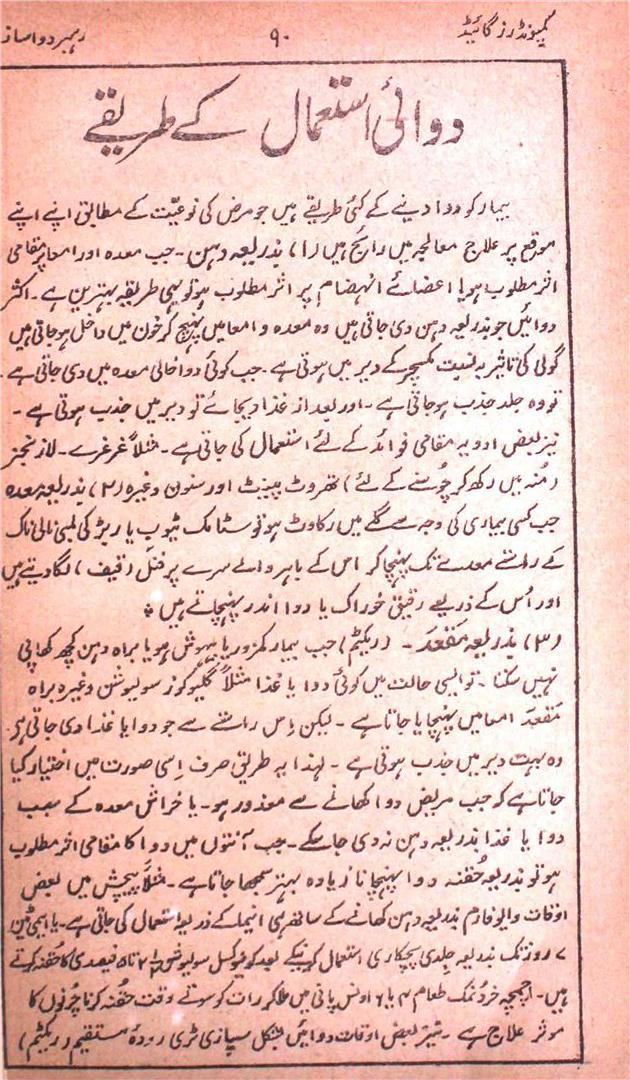 کمپونڈرز گائیڈ ۹۰ رہبر دواساز
دوائی استعمال کے طریقے
بیمار کو دوا دینے کے کئی طریقے ہیں جو مرض کی نوعیّت کے مطابق اپنے اپنے
موقع پر علاج معالجہ میں رائج ہیں (۱) بذریعہ دہن۔ جب معدہ اور امعا پر مقامی
اثر مطلوب ہو یا اعضائے انہضام پر اثر مطلوب ہو تو یہی طریقہ بہترین ہے۔ اکثر
دوائیں جو بذریعہ دہن دی جاتی ہیں وہ معدہ و امعا میں پہنچ کر خون میں داخل ہو جاتی ہیں
گولی کی تاثیر بہ نسبت مکسچر کے دیر میں ہوتی ہے۔ جب کوئی دوا خالی معدہ میں دی جاتی ہے۔
تو وہ جلد جذب ہو جاتی ہے۔ اور بعد از غذا دیجائے تو دیر میں جذب ہوتی ہے۔
نیز بعض ادویہ مقامی فوائد کے لئے استعمال کی جاتی ہے۔ مثلاً غرغرے۔ لازنجز
(مُنہ میں رکھ کر چُوسنے کے لئے) تھروٹ پینٹ اور سنون وغیرہ (۲) بذریعہ معدہ
جب کسی بیماری کی وجہ سے گلے میں رکاوٹ ہو تو سٹامک ٹیوب یا ربڑ کی لمبی نالی ناک
کے راستے معدے تک پہنچا کر اس کے باہر والے سرے پر فنل (قیف) لگا دیتے ہیں
اور اُس کے ذریعے رقیق خوراک یا دوا اندر پہنچاتے ہیں ٭
(۳) بذریعہ مَقعَد۔ (ریکٹم) جب بیمار کمزور یا بیہوش ہو یا براہ دہن کچھ کھا پی
نہیں سکتا۔ تو ایسی حالت میں کوئی دوا یا غذا مثلاً گلیوکوز سولیوشن وغیرہ براہ
مَقعَد امعا میں پہنچایا جاتا ہے۔ لیکن اِس راستے سے جو دوا یا غذا دی جاتی ہے۔
وہ بہت دیر میں جذب ہوتی ہے۔ لہذا یہ طریق صرف اِسی صورت میں اختیار کیا
جاتا ہے کہ جب مریض دوا کھانے سے معذور ہو۔ یا خراش معدہ کے سبب
دوا یا غذا بذریعہ دہن نہ دی جا سکے۔ جب آنتوں میں دوا کا مقامی اثر مطلوب
ہو تو بذریعہ حُقنہ دوا پہنچانا زیادہ بہتر سمجھا جاتا ہے۔ مثلاً پیچش میں بعض
اوقات وایوفارم بذریعہ دہن کھانے کے ساتھ ہی انیما کے ذریعہ استعمال کی جاتی ہے۔ یا ایمی ٹین
۷ روز تک بذریعہ جِلدی پچکاری استعمال کرنیکے بعد کو سولیوشن فیصدی کا حُقنہ کرتے
ہیں۔ ۱ چمچہ خرد نمک طعام ۴ یا ۶ اونس پانی میں ملا کر رات کو سوتے وقت حُقنہ کرنا چرنوں کا
موثر علاج ہے بعض اوقات دوائیں بشکل سپازی ٹری رودۂ مستقیم (ریکٹم)